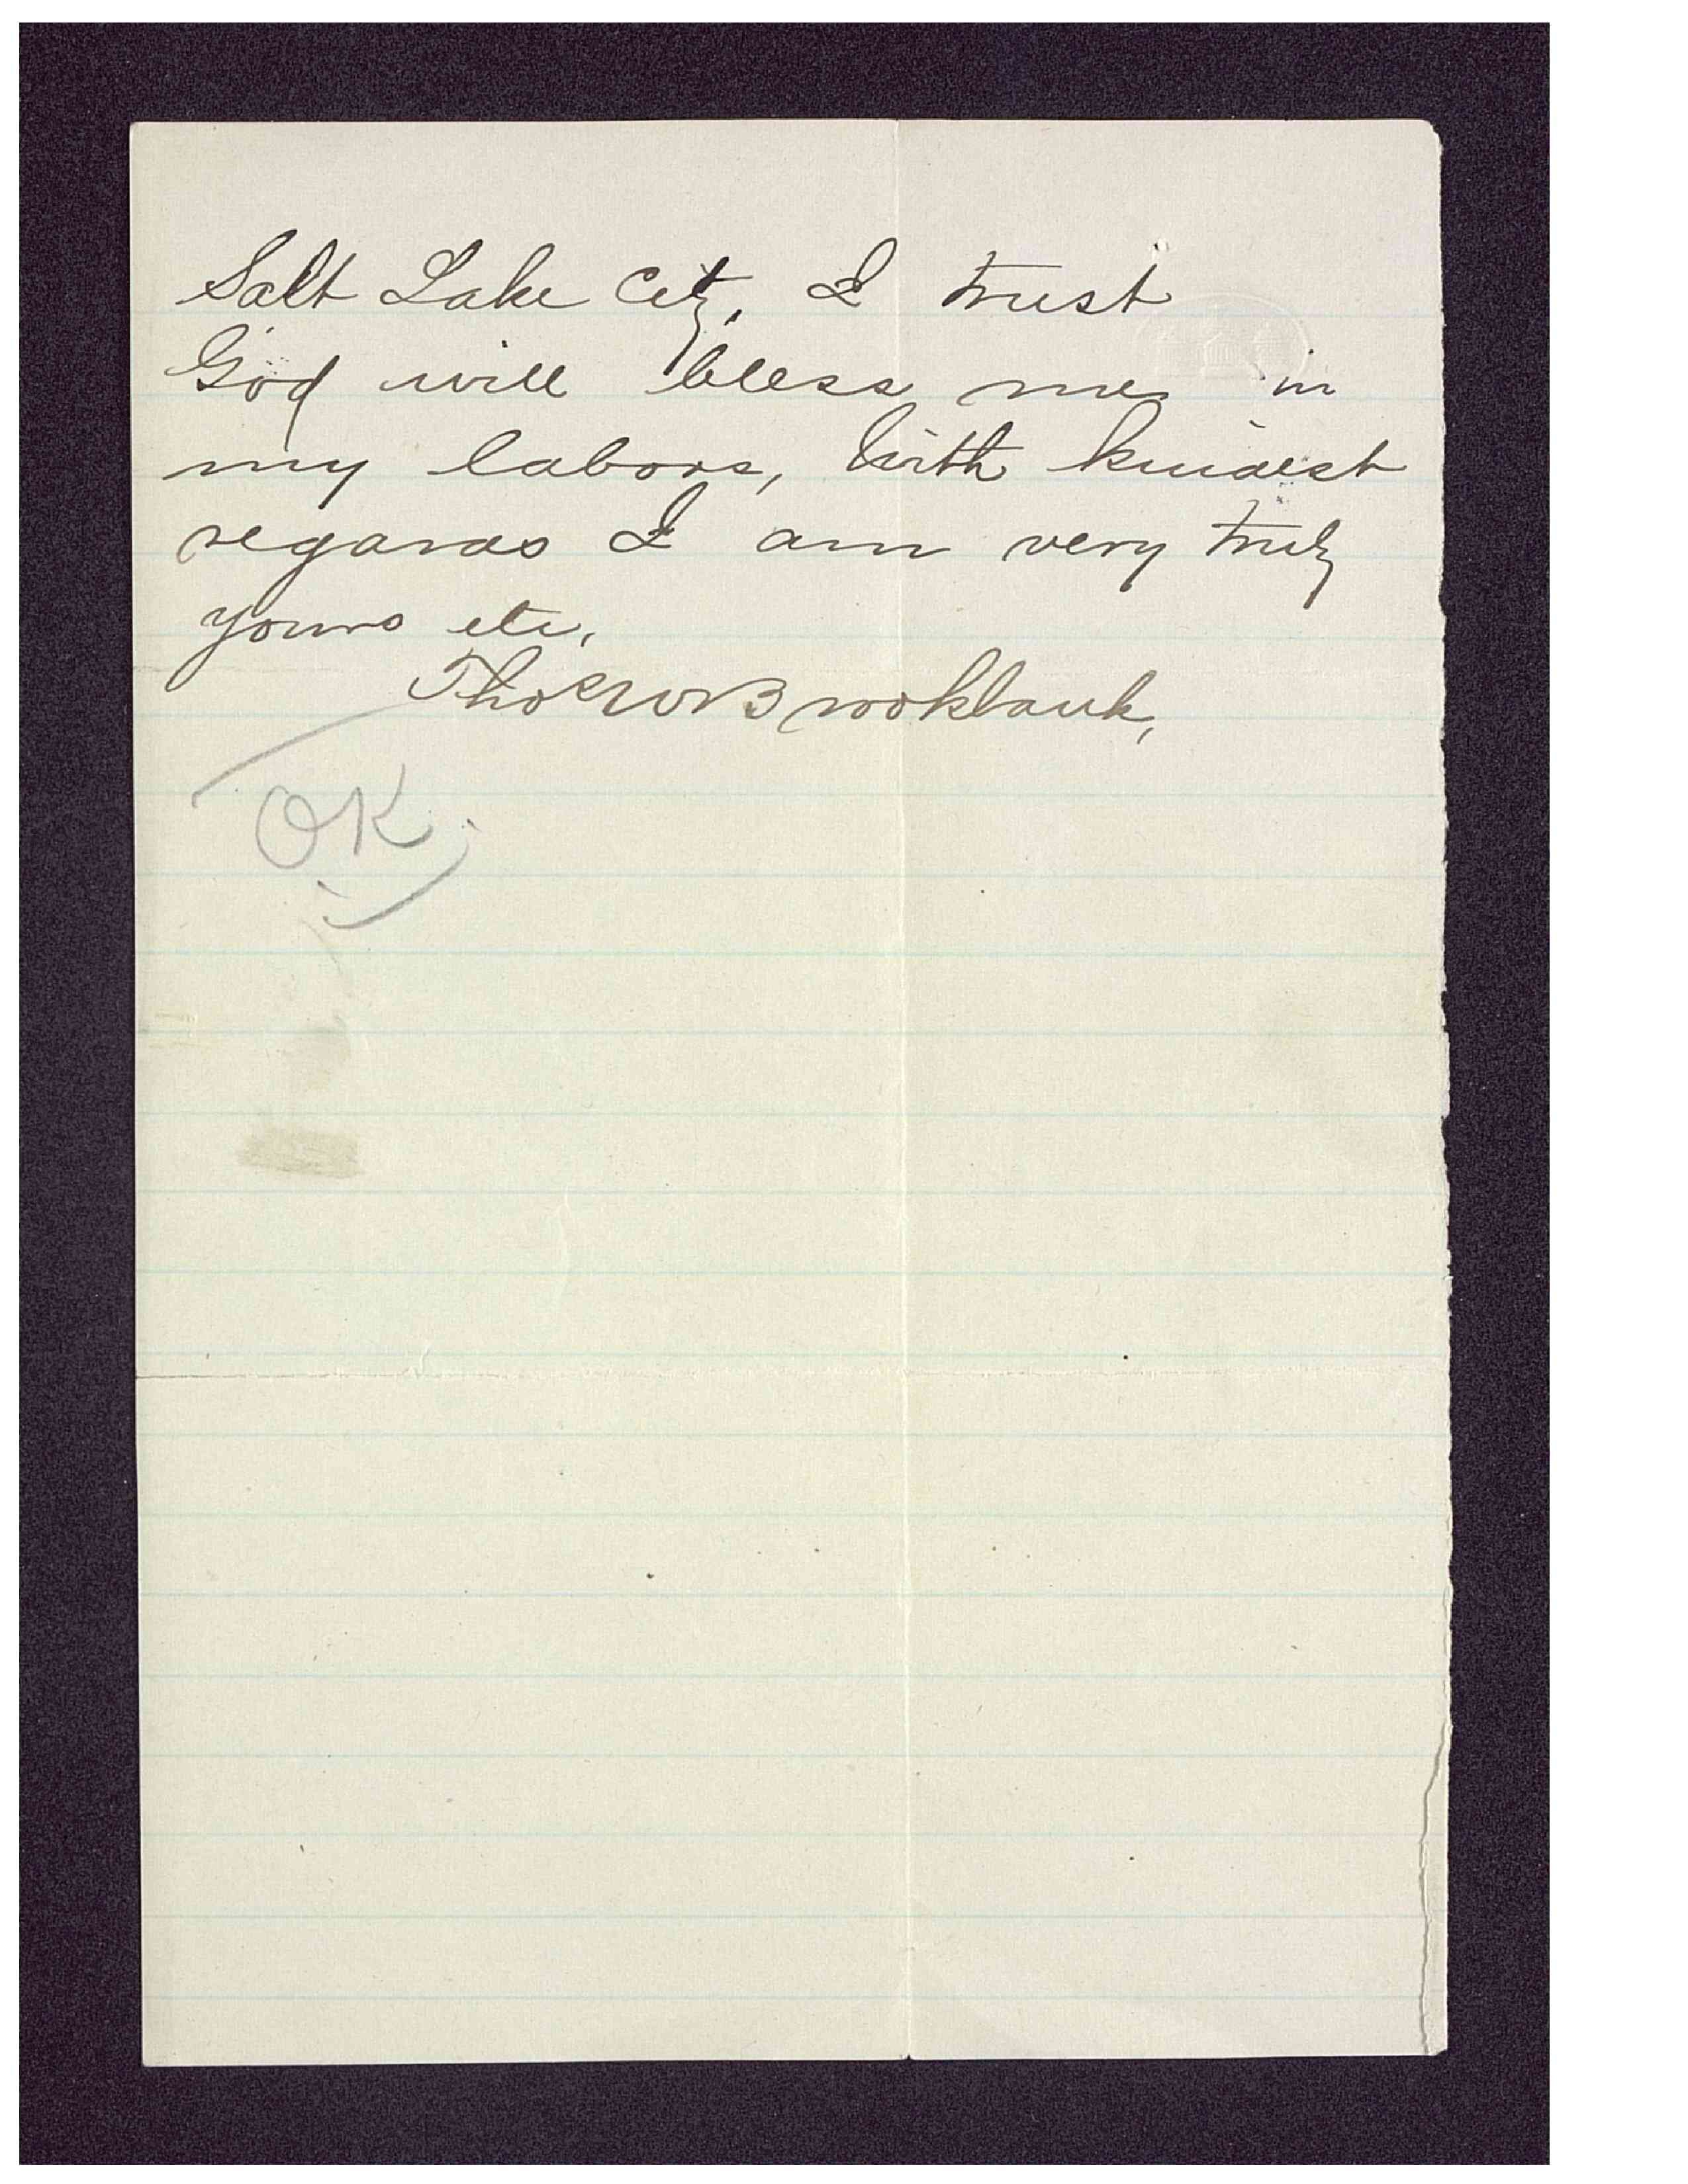 Salt Lake City. I trust
God will bless me in
my labors, With kindest
regards I am very truly
yours etc,
Thos W Brookbank,
OK